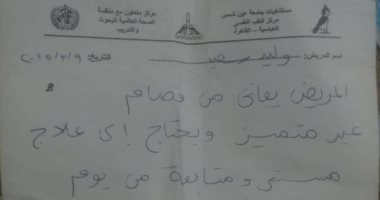 مستشفيات جامعة عين شمس
مركز الطب النفسى
العباسية - القاهرة
مركز متعاون مع منظمة
الصحة العالمية للبحوث
والتدريب
اسم المريض: وليد
التاريخ: ٢٠١٥/٣/٩
R
المريض يعانى من فصام
غير متميز ويحتاج إلى علاج
مستمر و متابعة من يوم